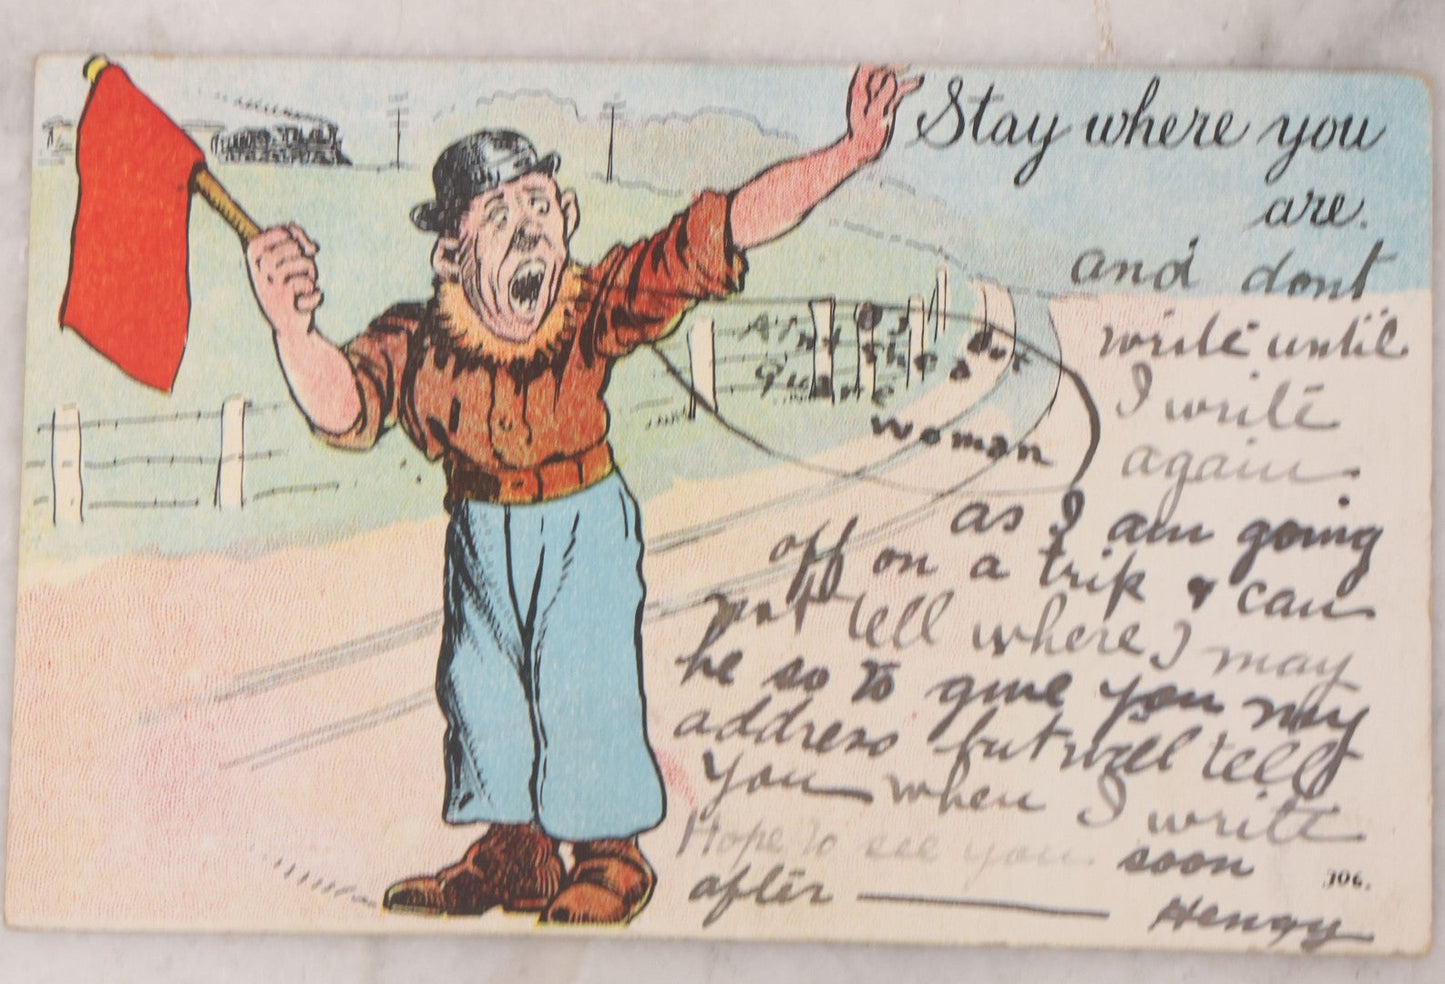 Stay where you
are.
and dont
write until
I write
again
as I am going
off on a trip & can
not tell where I may
be so to give you my
address but will tell
you when I write
Hope to see you soon
after
Henry
Aint
she a
woman
306.